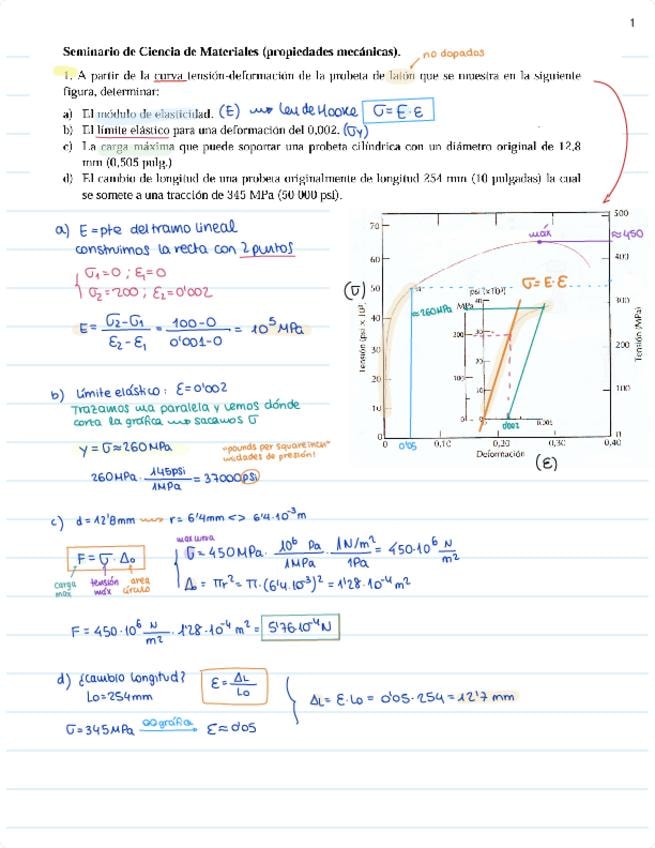 1
Seminario de Ciencia de Materiales (propiedades mecánicas).
no dopados
1. A partir de la curva tensión-deformación de la probeta de latón que se muestra en la siguiente
figura, determinar:
a) El módulo de elasticidad. (E) ley de Hooke σ = E·ε
b) El límite elástico para una deformación del 0,002. (σy)
c) La carga máxima que puede soportar una probeta cilíndrica con un diámetro original de 12,8
mm (0,505 pulg.)
d) El cambio de longitud de una probeta originalmente de longitud 254 mm (10 pulgadas) la cual
se somete a una tracción de 345 MPa (50 000 psi).
a) E = pte del tramo lineal
construimos la recta con 2 puntos
σ1=0 ; ε1=0
σ2=200 ; ε2=0'002
E = σ2-σ1 / ε2-ε1 = 100-0 / 0'001-0 = 10^5 MPa
b) Límite elástico: ε=0'002
Trazamos una paralela y vemos dónde
corta la gráfica → sacamos σ
y = σ ≈ 260MPa
"pounds per square inch"
unidades de presión!
260MPa · 145psi / 1MPa = 37000 psi
70
60
50
40
30
20
10
0
(σ)
Tensión (psi × 10³)
máx
≈450
500
400
300
200
100
0
Tensión (MPa)
σ=E·ε
psi (×10³)
MPa
≈260MPa
40
30
20
10
0
200
100
0
0'002
0
0'05
0,10
0,20
0,30
0,40
Deformación
(ε)
c) d=12'8mm → r=6'4mm <> 6'4·10^-3 m
F = σ · A0
carga max
tensión máx
area círculo
max curva
σ = 450MPa · 10^6 Pa / 1MPa · 1N/m² / 1Pa = 450·10^6 N/m²
A0 = πr² = π·(6'4·10^-3)² = 1'28·10^-4 m²
F = 450·10^6 N/m² · 1'28·10^-4 m² = 5'76·10^4 N
d) ¿cambio longitud?
L0=254mm
ε = ΔL / L0
ΔL = ε·L0 = 0'05·254 = 12'7 mm
σ=345MPa gráfica → ε≈0'05